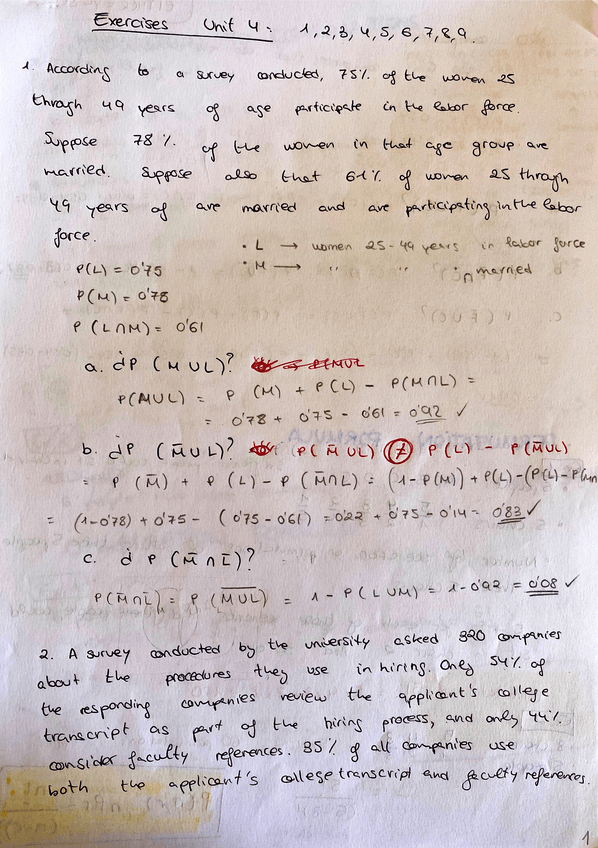 Exercises Unit 4: 1,2,3,4,5,6,7,8,9.
1. According to a survey conducted, 75% of the women 25
through 49 years of age participate in the labor force.
Suppose 78% of the women in that age group are
married. Suppose also that 61% of women 25 through
49 years of are married and are participating in the labor
force.
• L → women 25-49 years in labor force
• M → " " " married
P(L) = 0'75
P(M) = 0'78
P(L∩M) = 0'61
a. ¿P(M∪L)? P(M∪L
P(M∪L) = P(M) + P(L) - P(M∩L) =
= 0'78 + 0'75 - 0'61 = 0'92 ✓
b. ¿P(M̄∪L)? P(M̄∪L) ≠ P(L) - P(M̄∪L)
= P(M̄) + P(L) - P(M̄∩L) = (1-P(M)) + P(L) - (P(L) - P(M∩
= (1-0'78) + 0'75 - (0'75-0'61) = 0'22 + 0'75 - 0'14 = 0'83 ✓
c. ¿P(M̄∩L̄)?
P(M̄∩L̄) = P(M∪L)‾ = 1 - P(L∪M) = 1-0'92 = 0'08 ✓
2. A survey conducted by the university asked 320 companies
about the procedures they use in hiring. Only 54% of
the responding companies review the applicant's college
transcript as part of the hiring process, and only 44%
consider faculty references. 35% of all companies use
both the applicant's college transcript and faculty references.
1